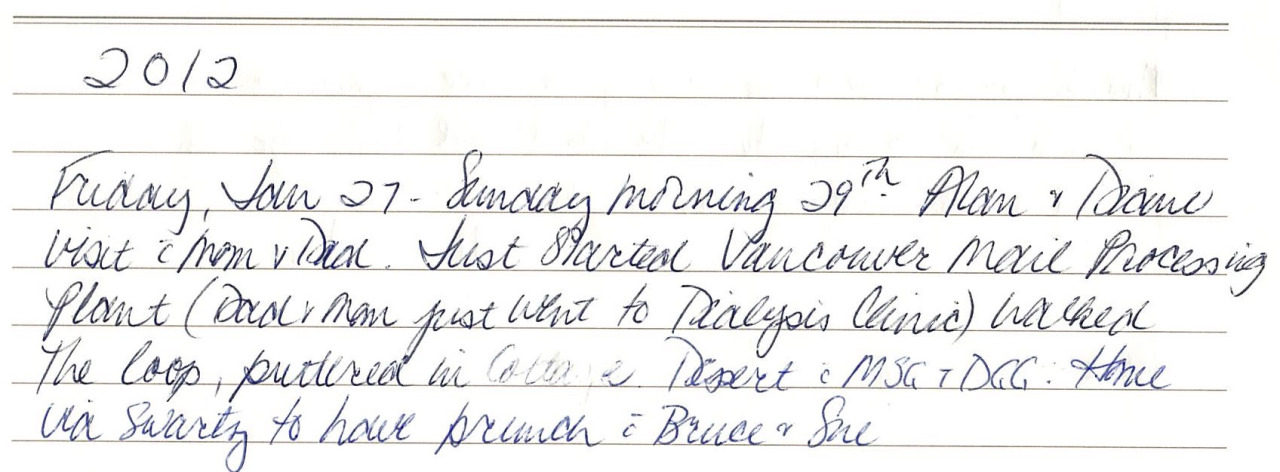 2012
Friday, Jan 27 - Sunday morning 29th Alan & Diane
visit c̄ Mom & Dad. Just Started Vancouver Mail Processing
Plant (Dad & Mom just went to Dialysis Clinic) walked
the loop, puttered in Cottage. Desert c̄ MSG + DGG. Home
via Swartz to have brunch c̄ Bruce & Sue